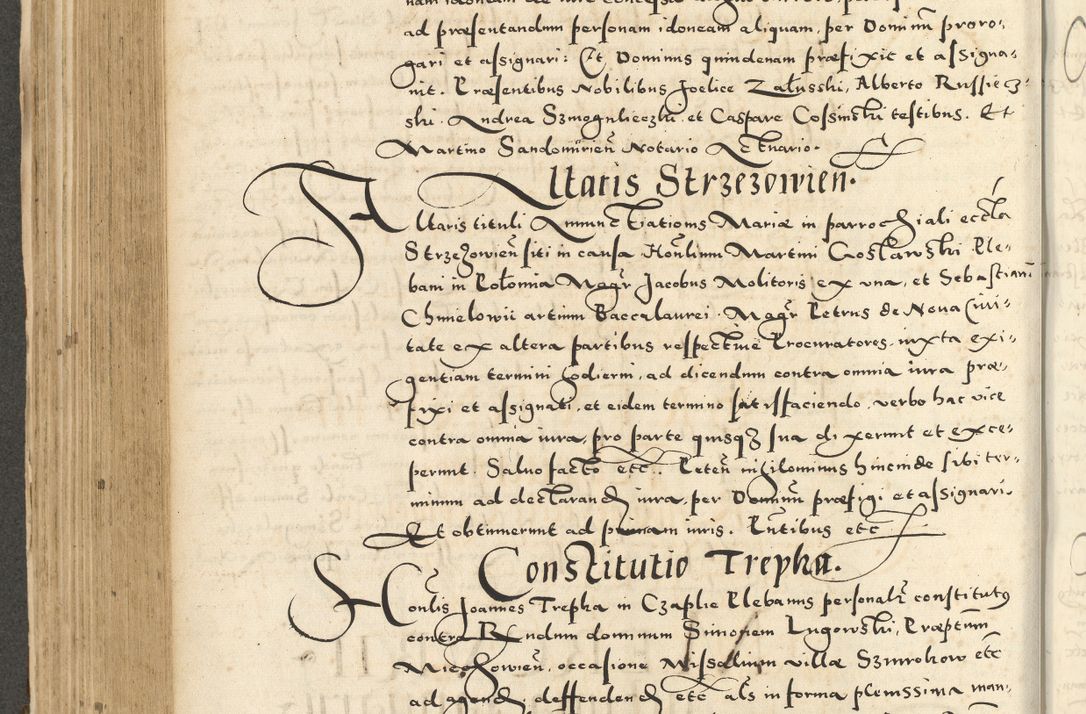 ad præsentandum personam idoneam aliquam, per Dominũ proro-
gari et assignari: Et Dominus quindenam præfixit et assigna-
uit. Præsentibus Nobilibus Joelice Załusski, Alberto Russiecz-
ski. Andrea Szmogulieczki, et Caspare Cossinski testibus. Et
Martino Sandomirieñ Notario Actuario.
Altaris Strzezowieñ.
Altaris tituli Annunctiationis Mariæ in parrochiali eccła
Strzezowieñ siti in causa Honłium Martini Goslawski Ple-
bani in Polomia Magr Jacobus Molitoris ex vna, et Sebastiani
Chmielowii artium Baccalaurei. Magr Petrus de Noua Ciui-
tate ex altera partibus respectiue Procuratores. iuxta exi-
gentiam termini hodierni, ad dicendum contra omnia iura præ-
fixi et assignati, et eidem termino satisfaciendo, verbo hac vice
contra omnia iura, pro parte quisq3 sua dixerunt et exce-
perunt. Saluo facto etc. Peteñ nihilominus hincinde sibi ter-
minum ad declarand iura, per Dominũ præfigi et assignari.
Et obtinuerunt ad primam iuris. Pñtibus etc
Constitutio Trepka.
Honlis Joannes Trepka in Czaplie Plebanus personalr constitutus
contra Rñdum dominum Simonem Lugowski, Præptum
Miechowieñ, occasione Missalium villæ Szmrokow etc
ad agend, deffendend etc als in forma plenissima man-